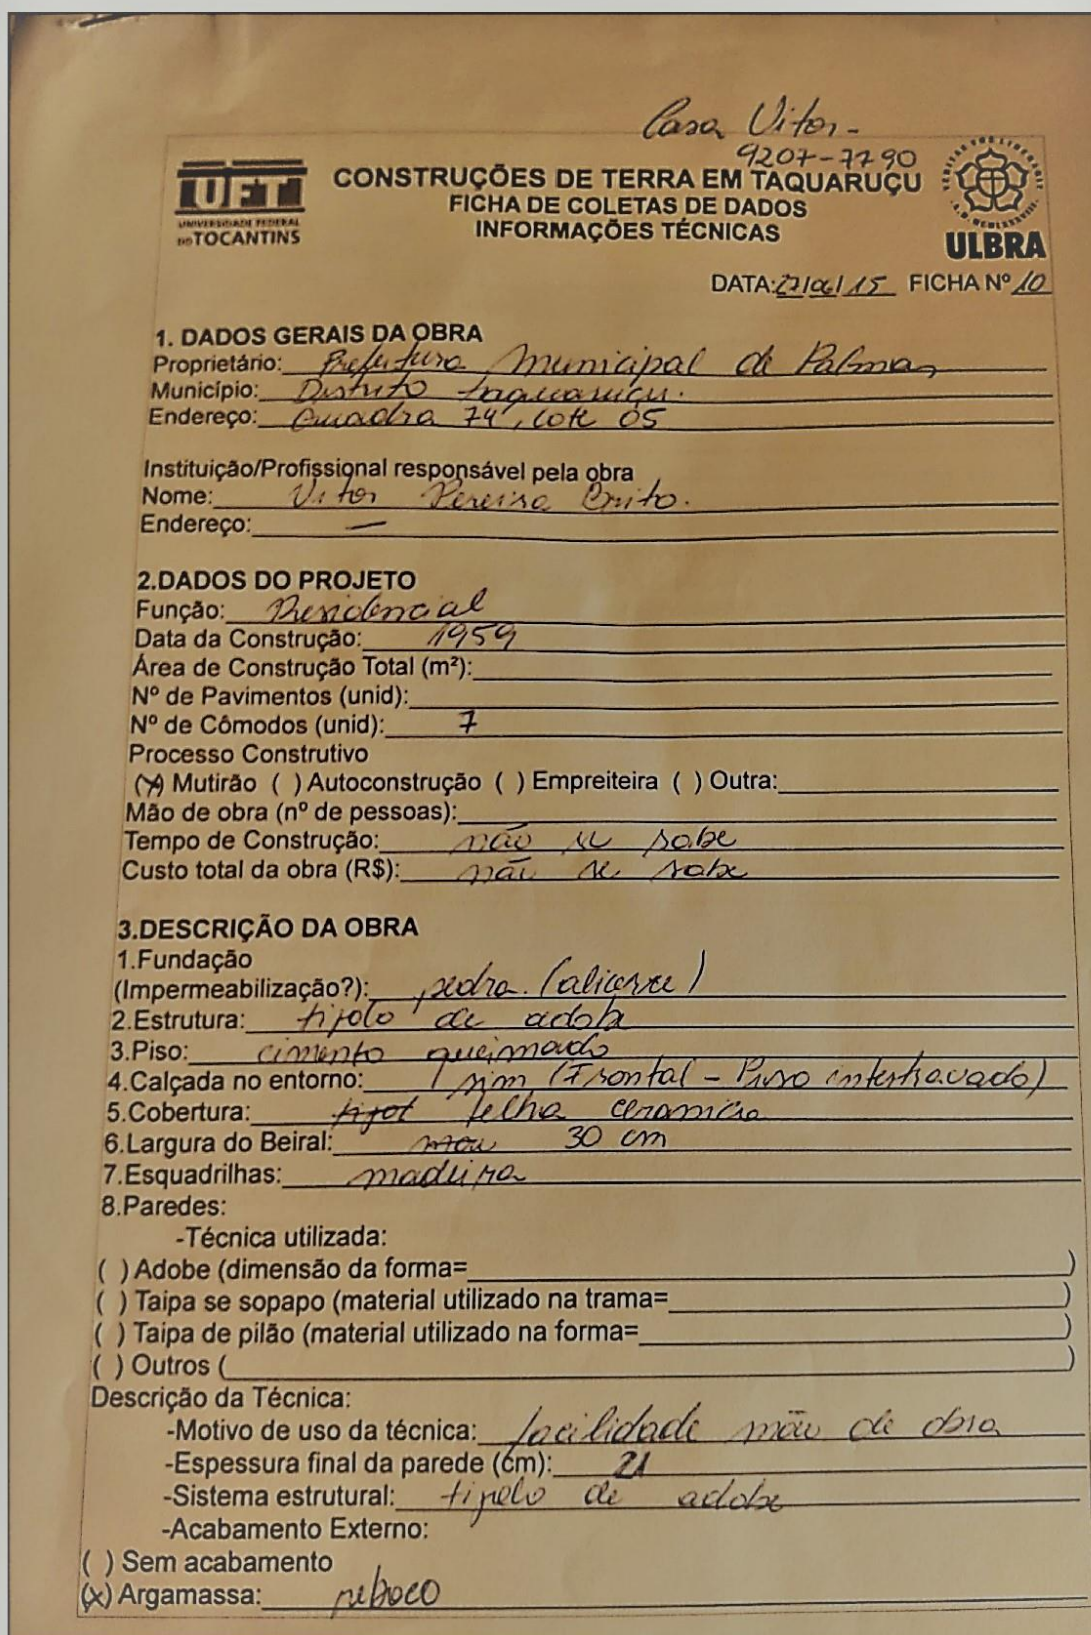 Casa Vitor -
9207-7790
UFT
UNIVERSIDADE FEDERAL
DO TOCANTINS
CONSTRUÇÕES DE TERRA EM TAQUARUÇU
FICHA DE COLETAS DE DADOS
INFORMAÇÕES TÉCNICAS
ULBRA
DATA: 27/06/15 FICHA Nº 10
1. DADOS GERAIS DA OBRA
Proprietário: Prefeitura Municipal de Palmas
Município: Distrito Taquaruçu.
Endereço: Quadra 74, lote 05
Instituição/Profissional responsável pela obra
Nome: Vitor Pereira Brito.
Endereço: —
2.DADOS DO PROJETO
Função: Residencial
Data da Construção: 1959
Área de Construção Total (m²):
Nº de Pavimentos (unid):
Nº de Cômodos (unid): 7
Processo Construtivo
(x) Mutirão ( ) Autoconstrução ( ) Empreiteira ( ) Outra:
Mão de obra (nº de pessoas):
Tempo de Construção: não se sabe
Custo total da obra (R$): não se sabe
3.DESCRIÇÃO DA OBRA
1.Fundação
(Impermeabilização?): pedra. (alicerce)
2.Estrutura: tijolo de adobe
3.Piso: cimento queimado
4.Calçada no entorno: sim (Frontal - Piso intertravado)
5.Cobertura: tijol telha ceramica
6.Largura do Beiral: 30 cm
7.Esquadrilhas: madeira
8.Paredes:
-Técnica utilizada:
( ) Adobe (dimensão da forma= )
( ) Taipa se sopapo (material utilizado na trama= )
( ) Taipa de pilão (material utilizado na forma= )
( ) Outros ( )
Descrição da Técnica:
-Motivo de uso da técnica: facilidade mão de obra
-Espessura final da parede (cm): 21
-Sistema estrutural: tijolo de adobe
-Acabamento Externo:
( ) Sem acabamento
(x) Argamassa: reboco